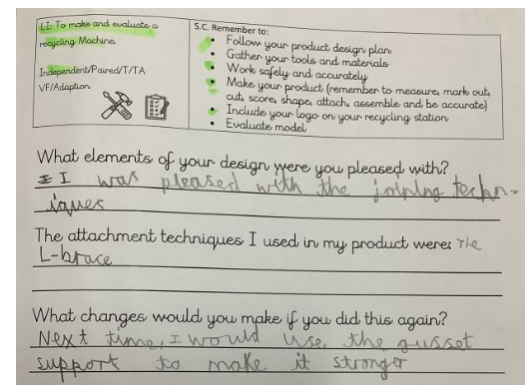 LI: To make and evaluate a
recycling Machine.
Independent/Paired/T/TA
VF/Adaption
S.C. Remember to:
• Follow your product design plan
• Gather your tools and materials
• Work safely and accurately
• Make your product (remember to measure, mark out,
cut, score, shape, attach, assemble and be accurate)
• Include your logo on your recycling station
• Evaluate model
What elements of your design were you pleased with?
I was pleased with the joining techn-
iques
The attachment techniques I used in my product were: The
L-brace
What changes would you make if you did this again?
Next time, I would use the gusset
support to make it stronger